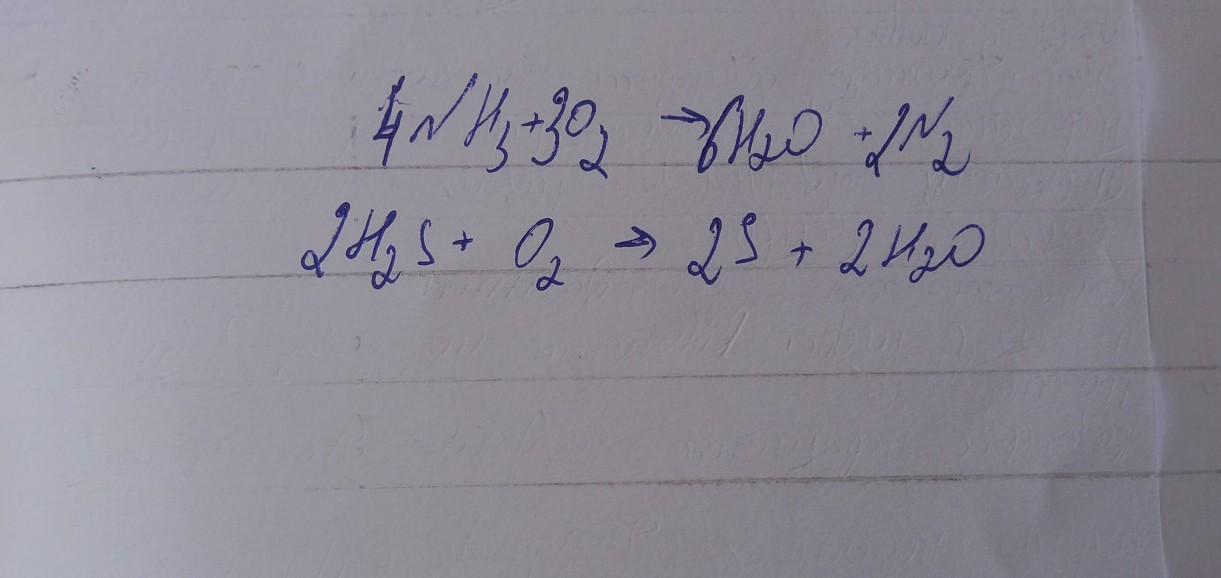 4NH₃+3O₂ → 6H₂O + 2N₂
2H₂S + O₂ → 2S + 2H₂O